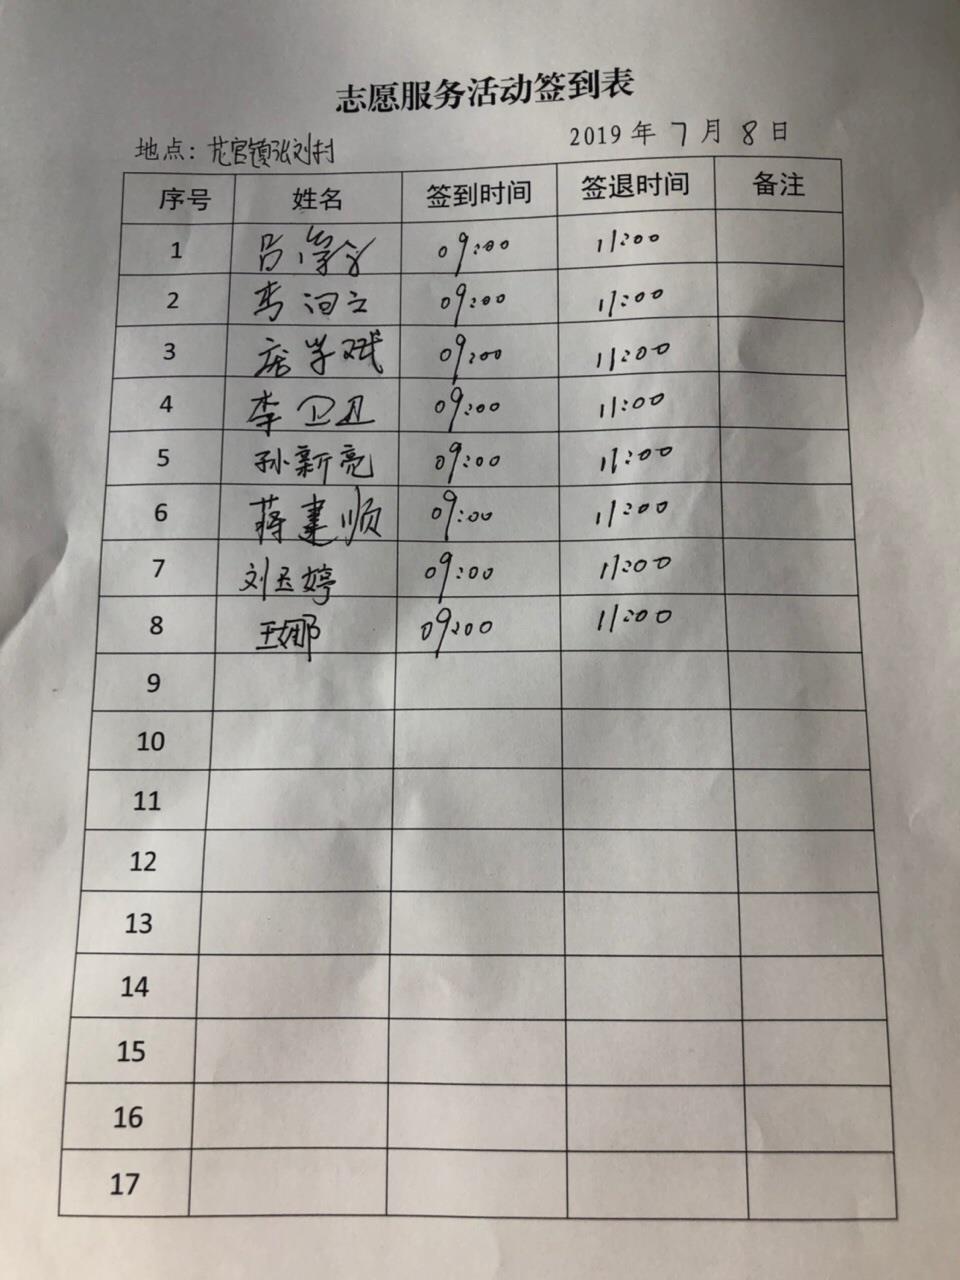 志愿服务活动签到表
地点：龙官镇张刘村 2019年7月8日
序号 姓名 签到时间 签退时间 备注
1 09:00 11:00
2 09:00 11:00
3 09:00 11:00
4 李卫卫 09:00 11:00
5 孙新亮 09:00 11:00
6 蒋建顺 09:00 11:00
7 刘玉婷 09:00 11:00
8 王娜 09:00 11:00
9
10
11
12
13
14
15
16
17